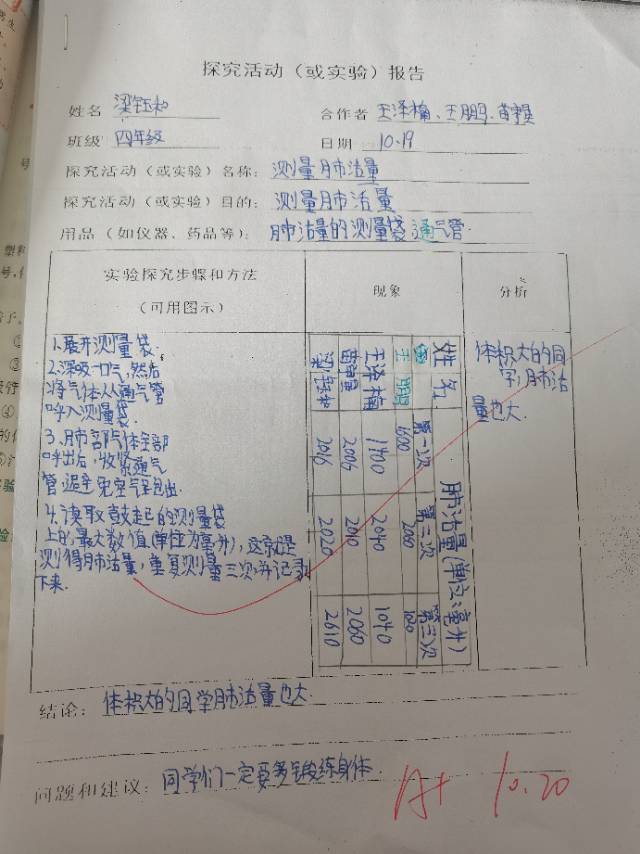 探究活动（或实验）报告
姓名 梁钰和
合作者 王泽楠、王鹏、苗
班级 四年级
日期 10.19
探究活动（或实验）名称：测量肺活量
探究活动（或实验）目的：测量肺活量
用品（如仪器、药品等）：肺活量的测量袋,通气管.
实验探究步骤和方法
（可用图示）
现象
分析
1.展开测量袋.
2.深吸一口气,然后
将气体从通气管
呼入测量袋.
3.肺部气体全部
呼出后,收紧通气
管,避免空气
4.读取鼓起的测量袋
上的最大数值(单位为毫升),这就是
测得肺活量,重复测量三次并记录
下来.
姓名
肺活量(单位:毫升)
第一次
第二次
第三次
王鹏
2000
王泽楠
1400
2040
1040
2006
2010
2060
2016
2020
2610
体积大的同
学,肺活
量也大.
结论：体积大的同学肺活量也大.
问题和建议：同学们一定要多锻练身体.
A+ 10.20